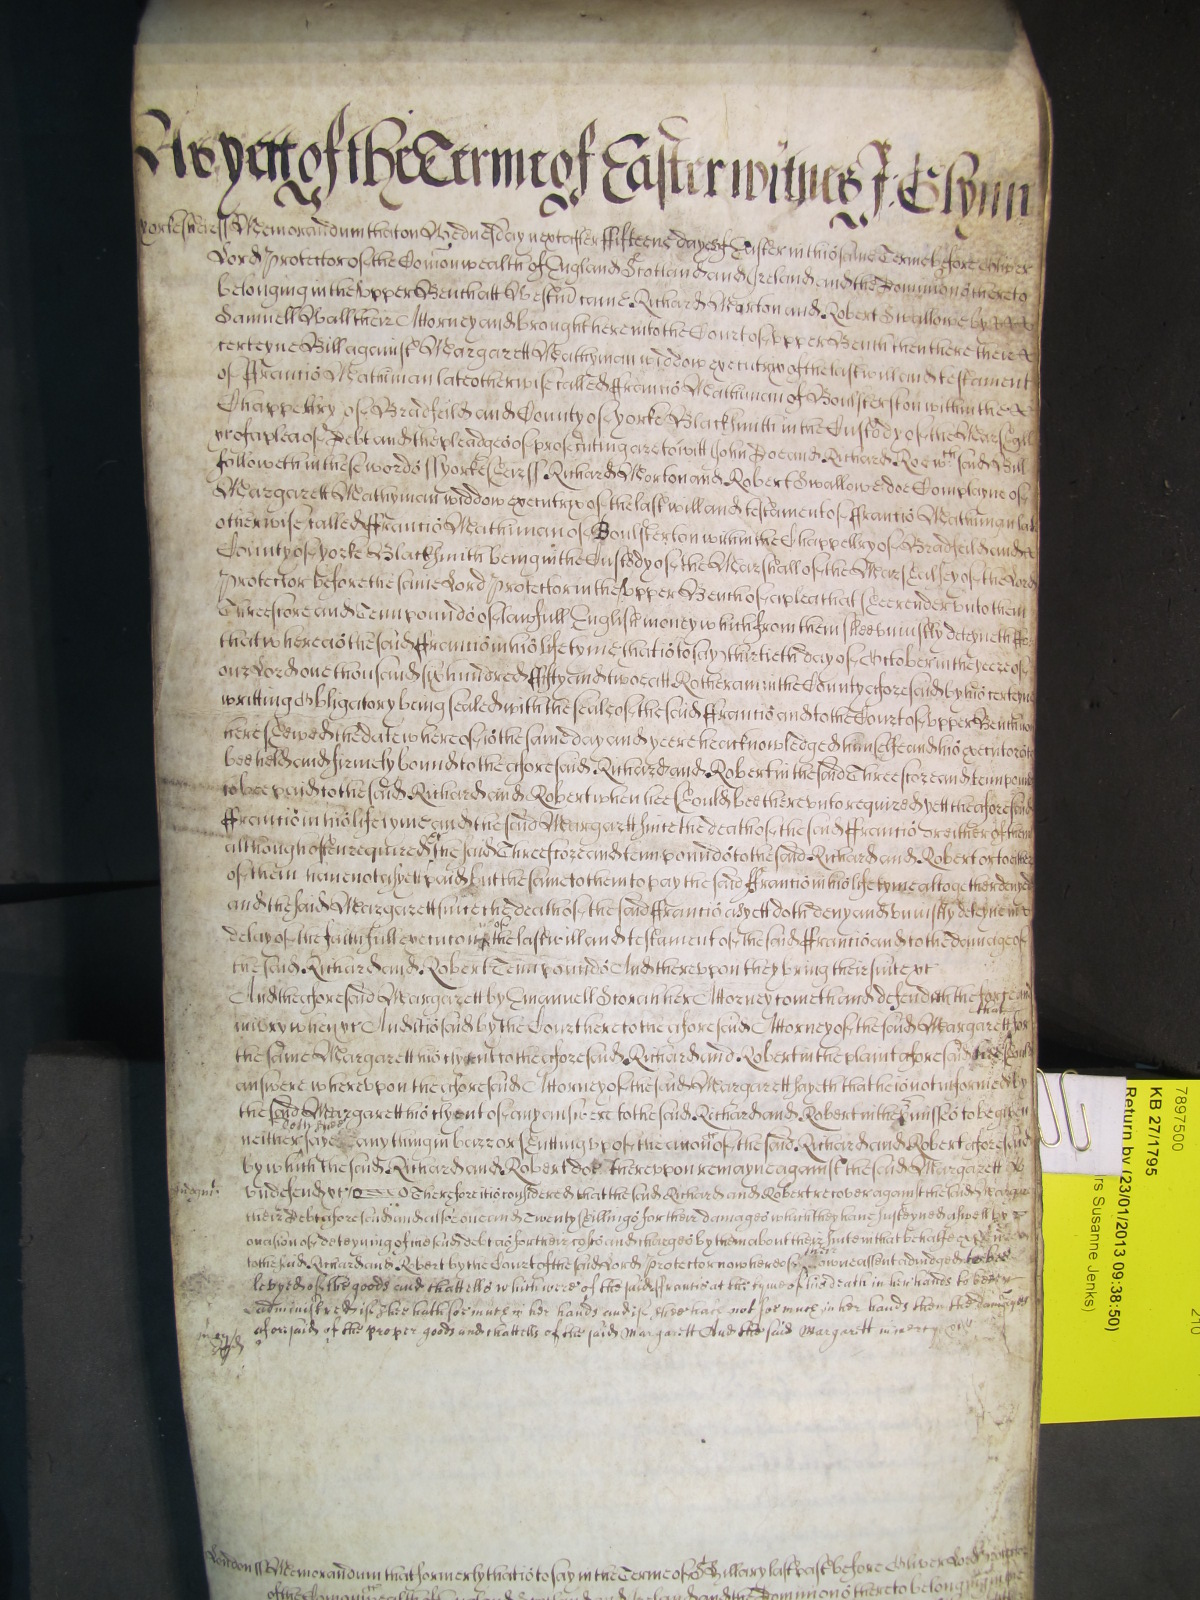 As yett of the Terme of Easter witnes J: Glynn
Yorkesheire ss Memorandum that on Wednesday next after ffifteene dayes of Easter in this same Terme before Oliver
Lord Protector of the Comonwealth of England Scotland and Ireland and the Dominions thereto
belonging in the upper Bench att Westm came Richard Morton and Robert Swallowe by
Samuell Wall their Attorney and brought here into the Court of upper Bench then there theire
certeyne Bill against Margarett Mathyman widdow executrix of the last will and testament
of ffrancis Mathiman late otherwise called ffrancis Mathiman of Boulsterston within the
Chappellry of Bradfeild and County of Yorke Blacksmith in the Custody of the Marshall
of a plea of Debt and the pleadges of prosecuting are to witt John Doe and Richard Roe wch said Bill
followeth in these words ss Yorkesheire ss Richard Morton and Robert Swallowe doe Complayne of
Margarett Mathyman widdow executrix of the last will and testament of ffrancis Mathiman late
otherwise called ffrancis Mathiman of Boulsterton within the Chappellry of Bradfeild and
County of Yorke Blacksmith being in the Custody of the Marshall of the Marshalsey of the Lord
Protector before the same Lord Protector in the upper Bench of a plea that shee render unto them
Threescore and Tenn pounds of lawfull English money which from them shee uniustly deteyneth ffor
that whereas the said ffrancis in his life tyme that is to say thirtieth day of October in the yeere of
our Lord one thousand six hundred ffifty and twoe att Rotheram in the County aforesaid by his certeyne
writting Obligatory being sealed with the seale of the said ffrancis and to the Court of upper Bench now
here shewed the date whereof is the same day and yeere he acknowledged himselfe and his executors to
bee held and firmely bound to the aforesaid Richard and Robert in the said Threescore and tenn pounds
to bee paid to the said Richard and Robert when hee should bee thereunto required yett the aforesaid
ffrancis in his life tyme and the said Margarett since the death of the said ffrancis or either of them
although often required the said Threescore and tenn pounds to the said Richard and Robert or to either
of them have not as yett paid but the same to them to pay the said ffrancis in his life tyme altogether denyed
and the said Margarett since the death of the said ffrancis as yett doth deny and uniustly deteyne in
delay of the faithfull execucon of the last will and testament of the said ffrancis and to the damage of
the said Richard and Robert Tenn pounds And thereupon they bring their suit etc
And the aforesaid Margarett by Emanuell Storah her Attorney cometh and defendeth the force and
iniury when etc And it is said by the Court here to the aforesaid Attorney of the said Margarett that for
the same Margarett his clyent to the aforesaid Richard and Robert in the plaint aforesaid hee should
answere whereupon the aforesaid Attorney of the said Margarett sayeth that he is not informed by
the said Margarett his clyent of any answere to the said Richard and Robert in the p'misses to be given
neither doth shee saye any thing in barr or shutting up of the accon of the said Richard and Robert aforesaid
by which the said Richard and Robert doe thereupon remayne against the said Margarett
undefended etc Therefore it is considered that the said Richard and Robert recover against the said Margarett
their Debt aforesaid and alsoe one and Twenty shillings for their damages which they have susteyned aswell by
occasion of deteyning of the said debt as for their costs and charges by them about their suite in that behalfe expended
to the said Richard and Robert by the Court of the said Lord Protector now here of their owne assent adiudged to bee
levyed of the goods and chattells which were of the said ffrancis at the tyme of his death in her hands to bee
administred if shee hath soe much in her hands and if shee hath not soe much in her hands then the damages
aforesaid of the proper goods and chattells of the said Margarett And the said Margarett in mercy
London ss Memorandum that formerly that is to say in the Terme of St Hillary last past before Oliver Lord Protector
of the Comonwealth of England Scotland and Ireland and the Dominions thereto belonging in the
7897500
KB 27/1795
Return by (23/01/2013 09:38:50)
rs Susanne Jenks)
210